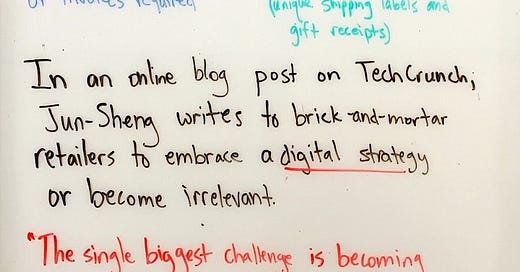 or invoices required
(unique shipping labels and
gift receipts)
In an online blog post on TechCrunch,
Jun-Sheng writes to brick-and-mortar
retailers to embrace a digital strategy
or become irrelevant.
"The single biggest challenge is becoming